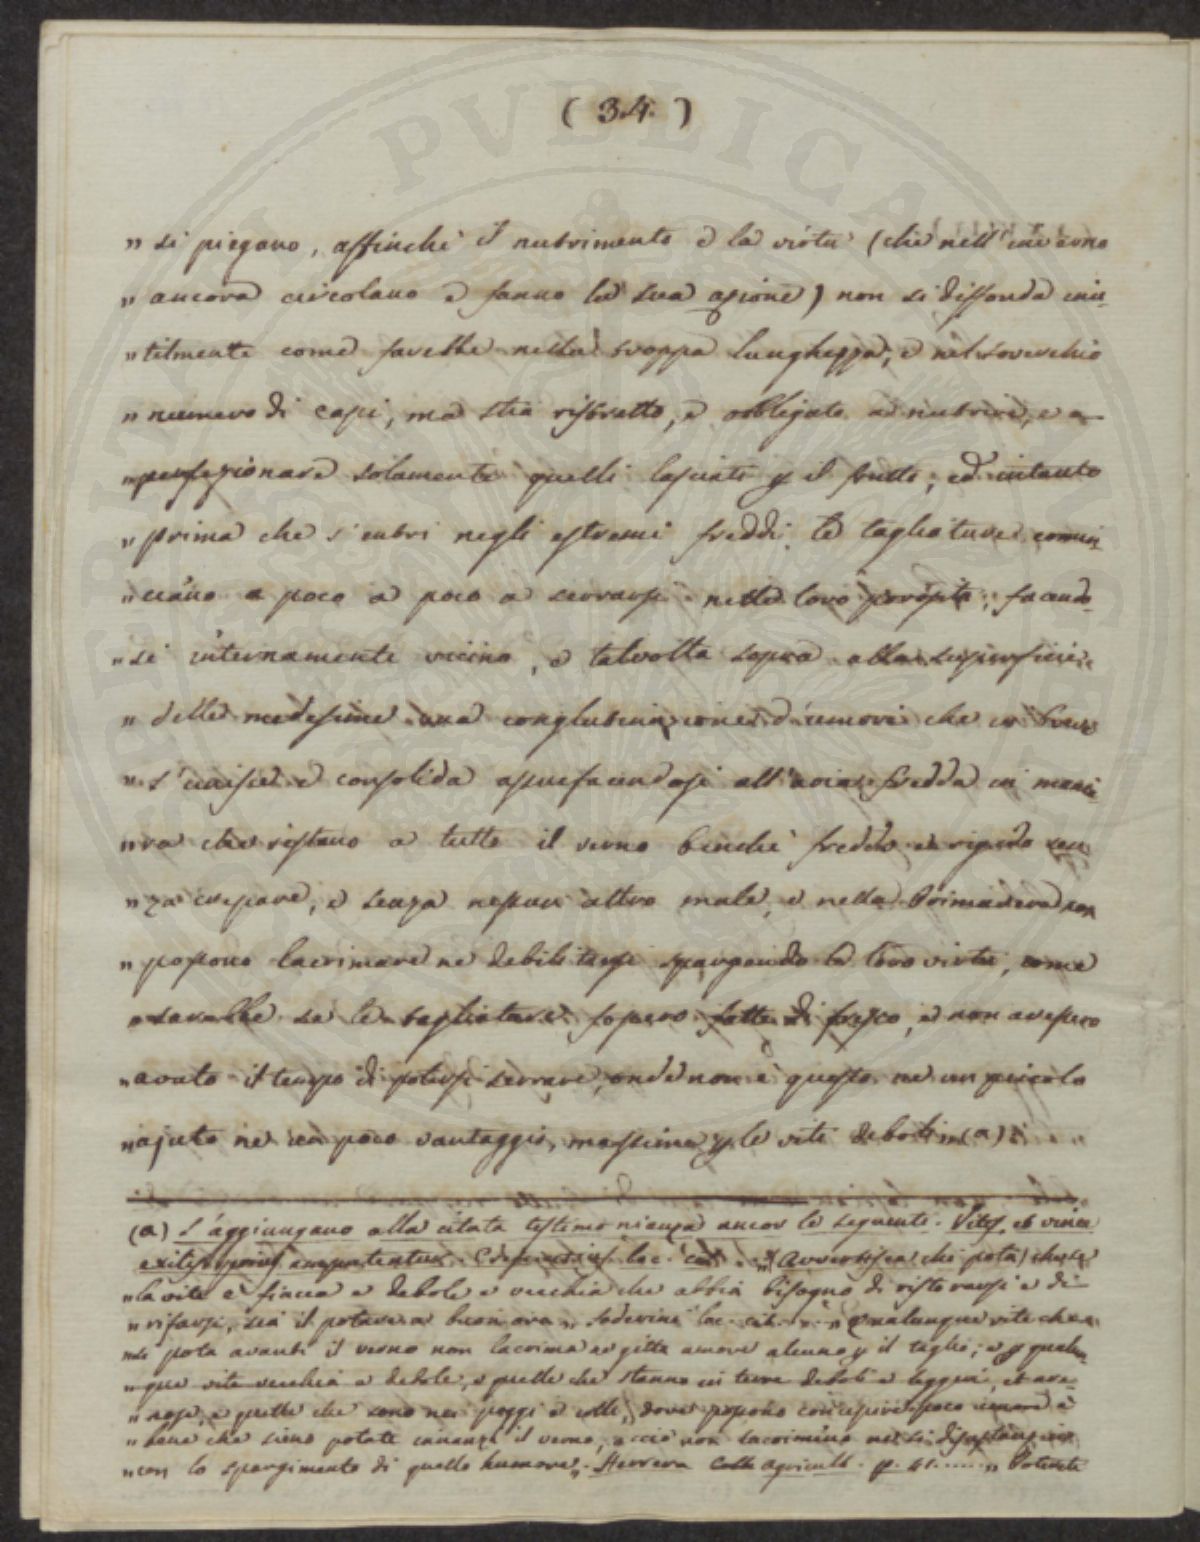 ( 34. )
„ si piegano, affinchè il nutrimento e la virtù (che nell' inverno
„ ancora circolano e fanno la sua azione) non si diffonda inu-
„ tilmente come farebbe nella troppa lunghezza, e nel soverchio
„ numero di capi, ma stia ristretto, e obbligato a nutrire, e a
„ perfezionare solamente quelli lasciati p il frutto; ed intanto
„ prima che s'entri negli estremi freddi le tagliature comin
„ ciano a poco a poco a serrarsi nelle loro porosità, facendo
„ si internamente vicino, e talvolta sopra alla superficie
„ delle medesime una conglutinazione d'umori che in breve
„ s' unisce e consolida assuefacendosi all'aria fredda in mani
„ ra che restano a tutto il verno benchè freddo e rigido sen
„ za crepare, e senza nessun altro male, e nella Primavera non
„ possono lacrimare ne debilitarsi spargendo la loro virtù, come
„ sarebbe se le tagliature fossero fatte di fresco, e non avessero
„ avuto il tempo di potersi serrare, onde non è questo ne un piccolo
„ ajuto ne un poco vantaggio, massime p le viti deboli „ (a)
(a) S'aggiungano alla citata testimonianza ancor le seguenti. Vites et vinea
exiles prius amputentur. Crescentius loc. cit. „ Avvertisca chi pota) che se
„ la vite è fiacca e debole e vecchia che abbia bisogno di ristorarsi e di
„ rifarsi, sia il potare a buon ora „ Soderini loc. cit. „ qualunque vite che
„ si pota avanti il verno non lacrima ne gitta umore alcuno p il taglio; e p qualun
„ que vite vecchia e debole, e quelle che stanno in terre deboli e leggieri, et are-
„ nose, e quelle che sono nei poggi e colli, dove possono concepire poco umore è
„ bene che sieno potate innanzi il verno, acciò non lacrimino ne si
„ con lo spargimento di quello humore „ Herrera Colla agricult. p. 41. ..... „ Poterete